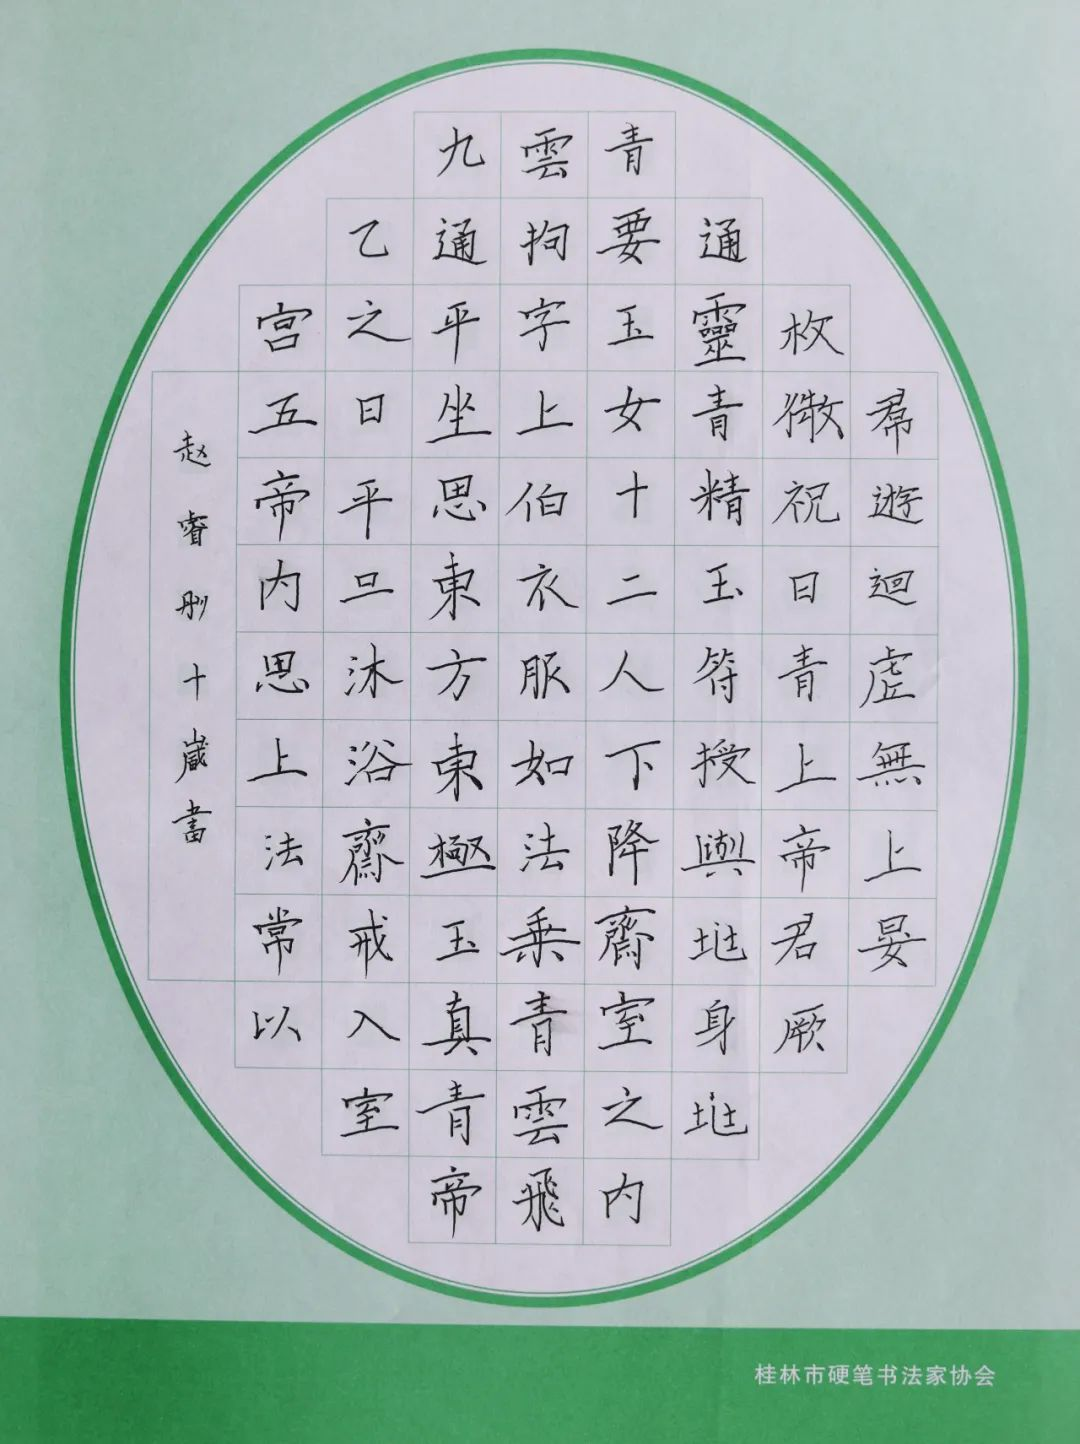 帬遊迴虛無上晏
枚微祝曰青上帝君厥
通靈青精玉符授與地身地
青要玉女十二人下降齋室之内
雲拘字上伯衣服如法乘青雲飛
九通平坐思東方東極玉真青帝
乙之日平旦沐浴齋戒入室
宮五帝内思上法常以
赵睿彤十歲書
桂林市硬笔书法家协会